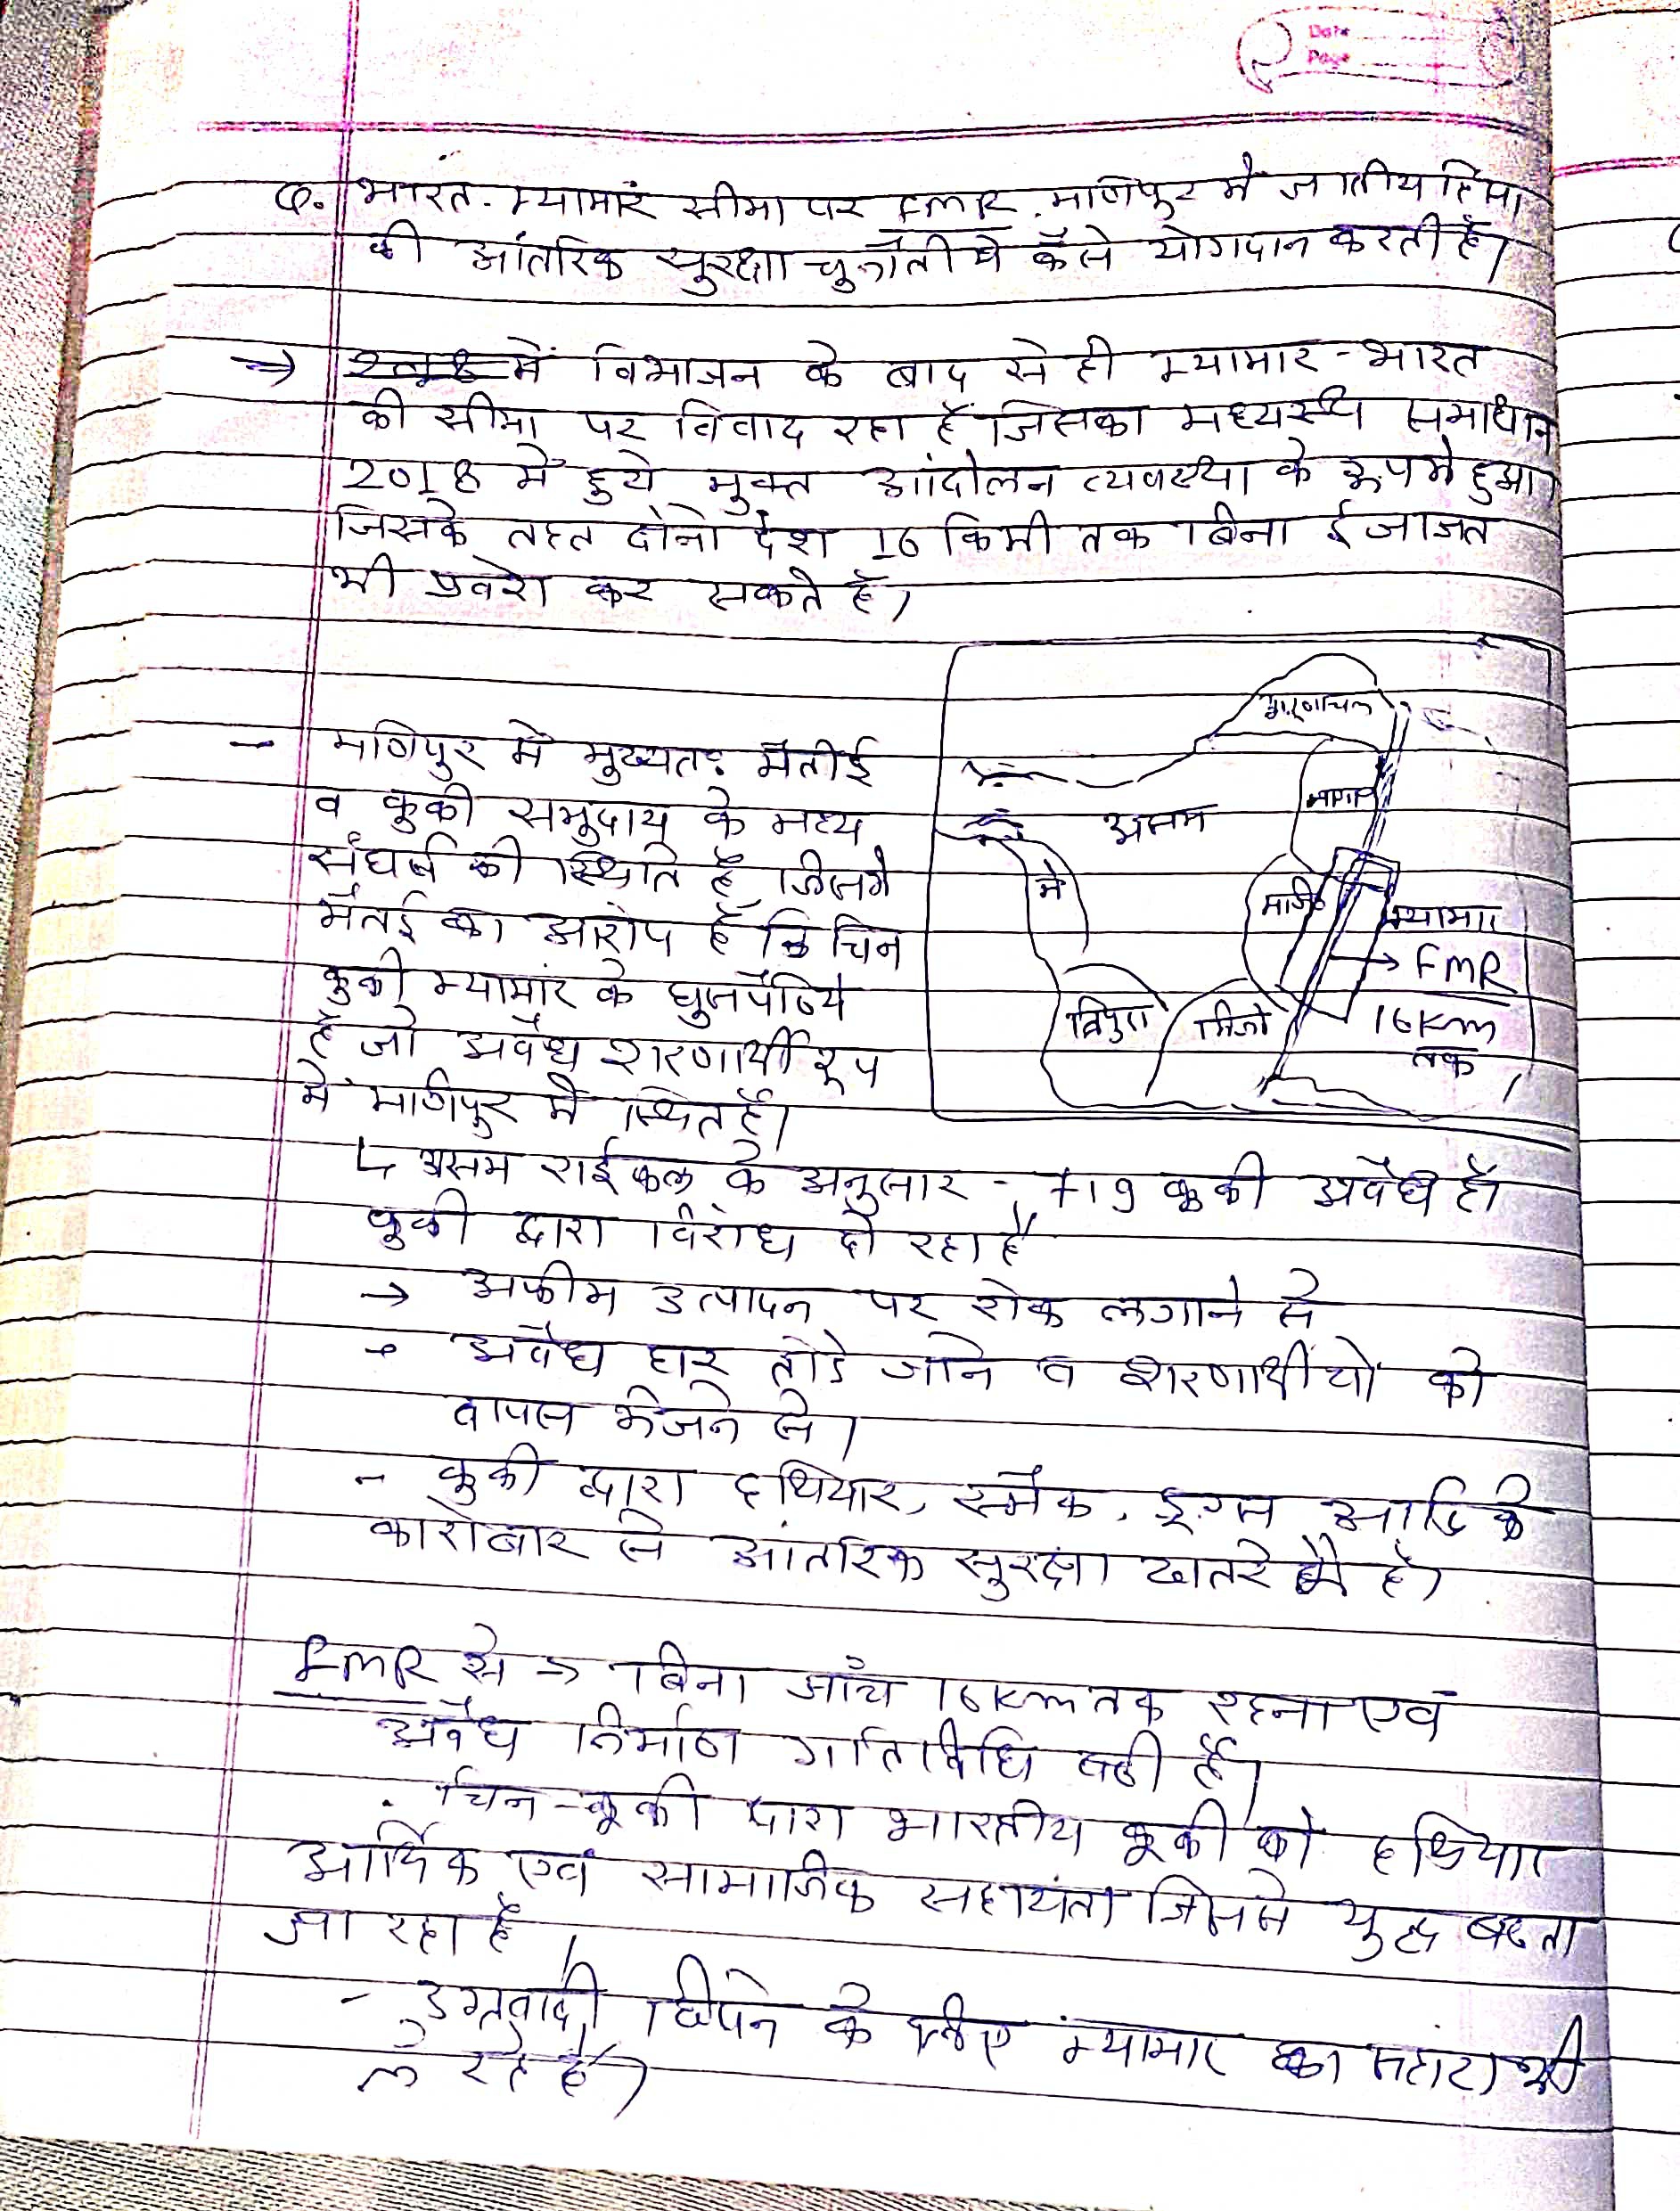 Date
Page
Q. भारत-म्यामांर सीमा पर FMR, मणिपुर में जातीय हिंसा
की आंतरिक सुरक्षा चुनौती में कैसे योगदान करती है।
→ में विभाजन के बाद से ही म्यामार - भारत
की सीमा पर विवाद रहा है जिसका मध्यस्थ समाधान
2018 में हुये मुक्त आंदोलन व्यवस्था के रूप में हुआ।
जिसके तहत दोनो देश 16 किमी तक बिना ईजाजत
भी प्रवेश कर सकते है।
अरूणाचल
- मणिपुर में मुख्यतः मैतीई
व कुकी समुदाय के मध्य
नागा
असम
संघर्ष की स्थिति है, जिसमें
मे
मणि
म्यामार
मैतई का आरोप है कि चिन
→ FMR
कुकी म्यामांर के घुसपैठिये
त्रिपुरा मिजो
16Km
तक
है जो अवैध शरणार्थी रूप
में मणिपुर में स्थित है।
↳ असम राईफल के अनुसार - 719 कूकी अवैध है।
कुकी द्वारा विरोध हो रहा है
→ अफीम उत्पादन पर रोक लगाने से
- अवैध घर तोडे जाने व शरणार्थीयो को
वापस भेजने से।
- कुकी द्वारा हथियार, स्मैक, ड्रग्स आदि के
कारोबार से आंतरिक सुरक्षा खतरे में है।
FMR से → बिना जाँच 16Km तक रहना एवं
अवैध निर्माण गतिविधि बढी है।
. चिन-कूकी द्वारा भारतीय कूकी को हथियार
आर्थिक एवं सामाजिक सहायता जिससे युद्ध बढता
जा रहा है।
- उग्रवादी छिपने के लिए म्यामार का सहारा भी
ले रहे है।